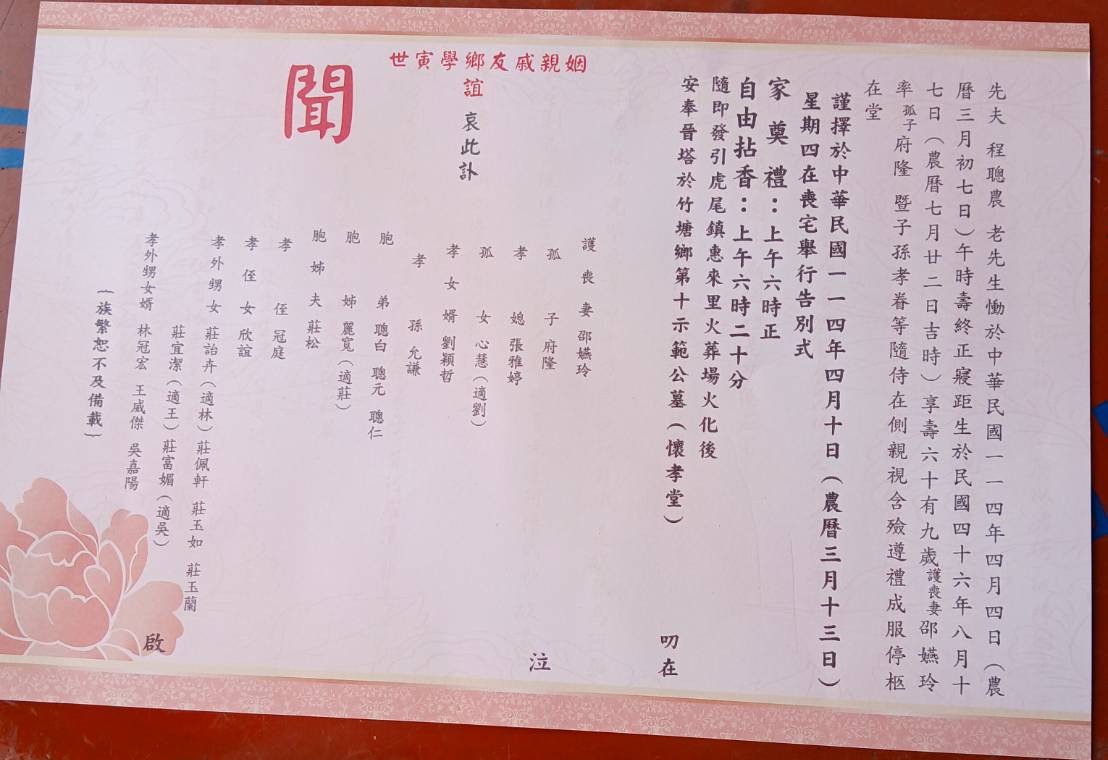 先夫 程聰農 老先生慟於中華民國一一四年四月四日（農
曆三月初七日）午時壽終正寢距生於民國四十六年八月十
七日（農曆七月廿二日吉時）享壽六十有九歲護喪妻邵嬿玲
率孤子府隆 暨子孫孝眷等隨侍在側親視含殮遵禮成服停柩
在堂
謹擇於中華民國一一四年四月十日（農曆三月十三日）
星期四在喪宅舉行告別式
家奠禮：上午六時正
自由拈香：上午六時二十分
隨即發引虎尾鎮惠來里火葬場火化後
安奉晉塔於竹塘鄉第十示範公墓（懷孝堂）
叨在
姻親戚友鄉學寅世
誼
哀此訃
聞
護喪妻 邵嬿玲
孤子 府隆
孝媳 張雅婷
孤女 心慧（適劉）
孝女婿 劉穎哲
孝孫 允謙
胞弟 聰白 聰元 聰仁
胞姊 麗寬（適莊）
胞姊夫 莊松
孝侄 冠庭
孝侄女 欣誼
孝外甥女 莊詒卉（適林）莊佩軒 莊玉如 莊玉蘭
莊宜潔（適王）莊富媚（適吳）
孝外甥女婿 林冠宏 王威傑 吳嘉陽
（族繁恕不及備載）
泣
啟